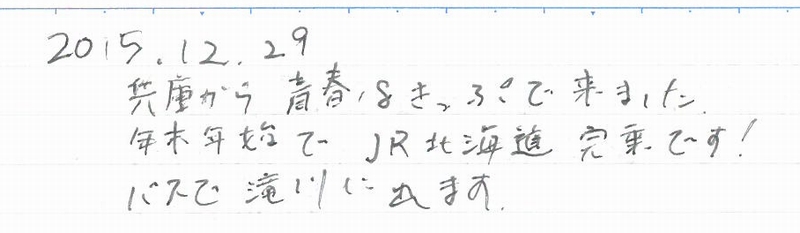 2015.12.29
兵庫から青春18きっぷで来ました.
年末年始で JR北海道 完乗です!
バスで滝川に出ます.